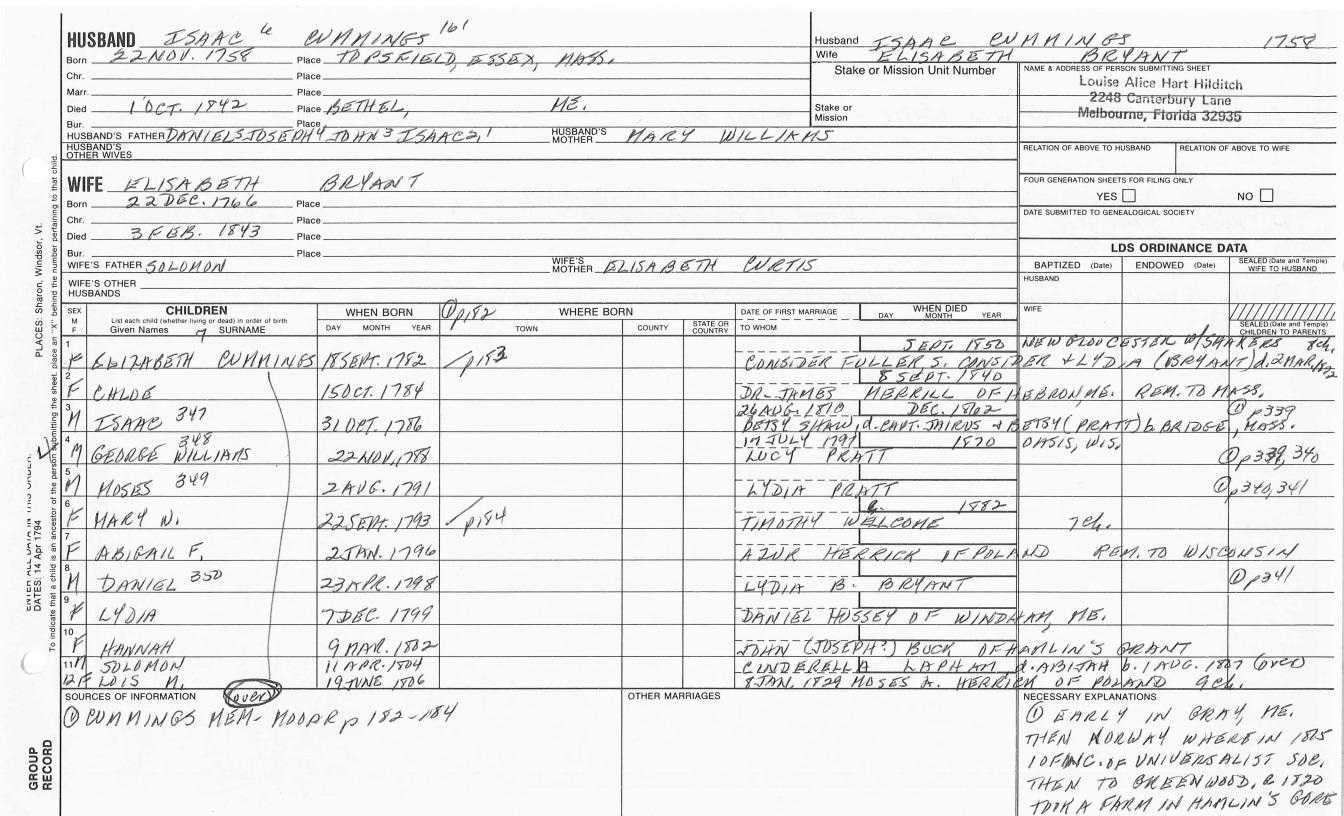 HUSBAND ISAAC 6 CUMMINGS 161
Born 22 NOV. 1758 Place TOPSFIELD, ESSEX, MASS.
Chr. Place
Marr. Place
Died 1 OCT. 1842 Place BETHEL, ME.
Bur. Place
HUSBAND'S FATHER DANIEL5 JOSEPH4 JOHN3 ISAAC2,1 HUSBAND'S MOTHER MARY WILLIAMS
HUSBAND'S OTHER WIVES
Husband ISAAC CUMMINGS 1758
Wife ELISABETH BRYANT
Stake or Mission Unit Number
Stake or Mission
NAME & ADDRESS OF PERSON SUBMITTING SHEET
Louise Alice Hart Hilditch
2248 Canterbury Lane
Melbourne, Florida 32935
RELATION OF ABOVE TO HUSBAND RELATION OF ABOVE TO WIFE
FOUR GENERATION SHEETS FOR FILING ONLY
YES NO
DATE SUBMITTED TO GENEALOGICAL SOCIETY
WIFE ELISABETH BRYANT
Born 22 DEC. 1766 Place
Chr. Place
Died 3 FEB. 1843 Place
Bur. Place
WIFE'S FATHER SOLOMON WIFE'S MOTHER ELISABETH CURTIS
WIFE'S OTHER HUSBANDS
LDS ORDINANCE DATA
BAPTIZED (Date) ENDOWED (Date) SEALED (Date and Temple) WIFE TO HUSBAND
HUSBAND
WIFE
SEALED (Date and Temple) CHILDREN TO PARENTS
SEX M F
CHILDREN
List each child (whether living or dead) in order of birth
Given Names 7 SURNAME
WHEN BORN
DAY MONTH YEAR
① p182 WHERE BORN
TOWN COUNTY STATE OR COUNTRY
DATE OF FIRST MARRIAGE
TO WHOM
WHEN DIED
DAY MONTH YEAR
SEPT. 1850 NEW GLOUCESTER W/SHAKERS 8ch.
1 F ELIZABETH CUMMINGS 18 SEPT. 1782 p183 CONSIDER FULLER S. CONSIDER & LYDIA (BRYANT) d. 2 MAR.
8 SEPT. 1840
2 F CHLOE 15 OCT. 1784 DR. JAMES MERRILL OF HEBRON, ME. REM. TO MASS.
26 AUG. 1810 DEC. 1862 ① p339
3 M ISAAC 347 31 OCT. 1786 BETSY SHAW, d. CAPT. JAIRUS & BETSY (PRATT) b. BRIDGE, MASS.
17 JULY 1791 1870 OASIS, WIS.
4 M GEORGE WILLIAMS 348 22 NOV. 1788 LUCY PRATT ① p339, 340
5 M MOSES 349 2 AUG. 1791 LYDIA PRATT ① p340,341
1882
6 F MARY N. 22 SEPT. 1793 p184 TIMOTHY WELCOME 7 ch.
7 F ABIGAIL F. 2 JAN. 1796 AZUR HERRICK OF POLAND REM. TO WISCONSIN
8 M DANIEL 350 23 APR. 1798 LYDIA B. BRYANT ① p341
9 F LYDIA 7 DEC. 1799 DANIEL HUSSEY OF WINDHAM, ME.
10 F HANNAH 9 MAR. 1802 JOHN (JOSEPH?) BUCK OF HAMLIN'S GRANT
11 M SOLOMON 11 APR. 1804 CINDERELLA LAPHAM d. ABIJAH b. 1 AUG. 1807 (over)
12 F LOIS M. 19 JUNE 1806 8 JAN. 1829 MOSES A. HERRICK OF POLAND 9 ch.
SOURCES OF INFORMATION (over)
① CUMMINGS MEM- MOOAR p 182-184
OTHER MARRIAGES
NECESSARY EXPLANATIONS
① EARLY IN GRAY, ME.
THEN NORWAY WHERE IN
1 OF INC. OF UNIVERSALIST SOC.
THEN TO GREENWOOD, & 1820
TOOK A FARM IN HAMLIN'S GORE
PLACES: Sharon, Windsor, Vt.
ENTER ALL DATA IN THIS ORDER:
DATES: 14 Apr 1794
To indicate that a child is an ancestor of the person submitting the sheet, place an "X" behind the number pertaining to that child.
GROUP RECORD